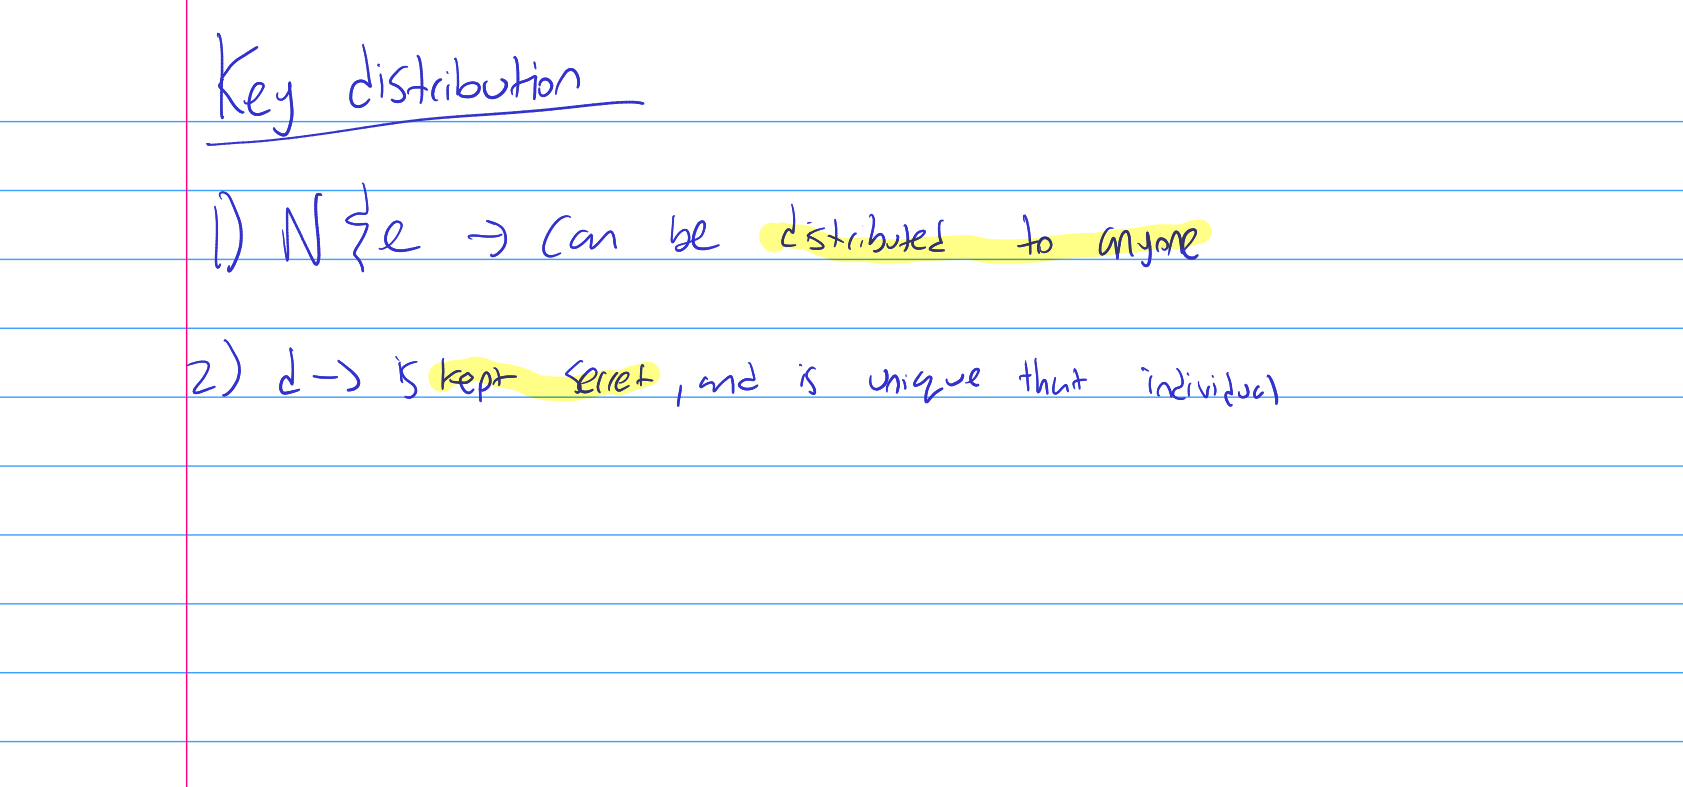 Key distribution
1) N & e → can be distributed to anyone
2) d → is kept secret, and is unique that individual